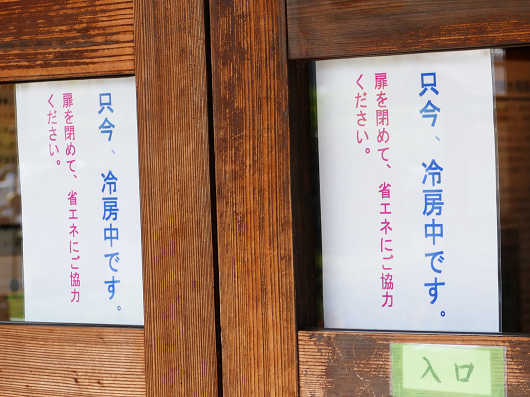 只今、冷房中です。
扉を閉めて、省エネにご協力
ください。
只今、冷房中です。
扉を閉めて、省エネにご協力
ください。
入口